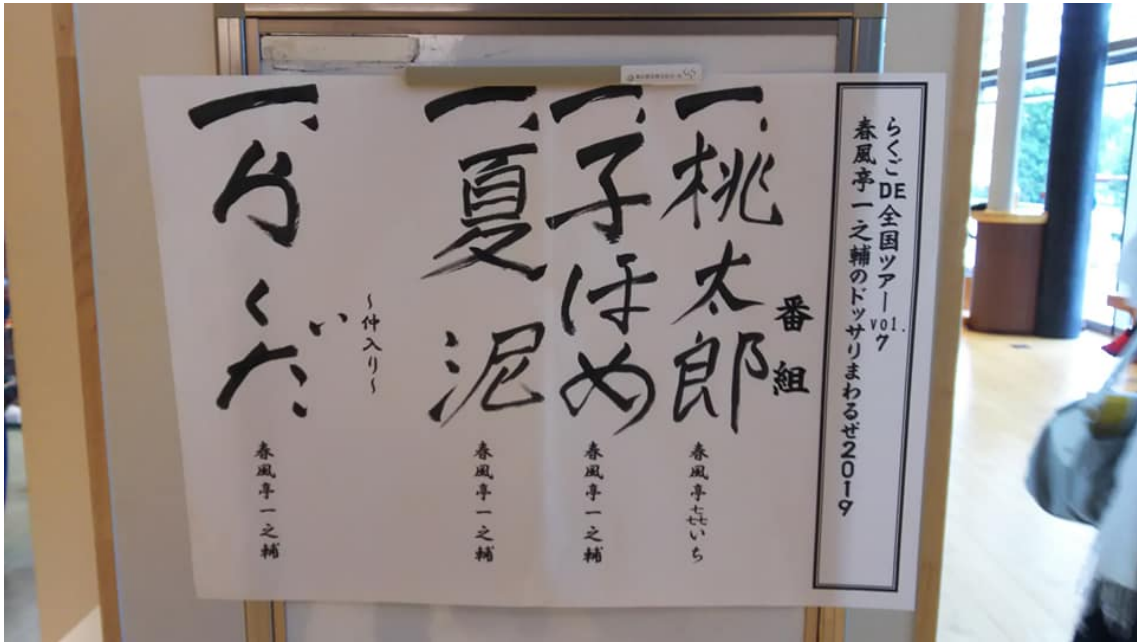 らくごDE全国ツアー vol.7
春風亭一之輔のドッサリまわるぜ2019
番組
一、桃太郎 春風亭㐂いち
一、子ほめ 春風亭一之輔
一、夏泥 春風亭一之輔
～仲入り～
一、らくだ 春風亭一之輔